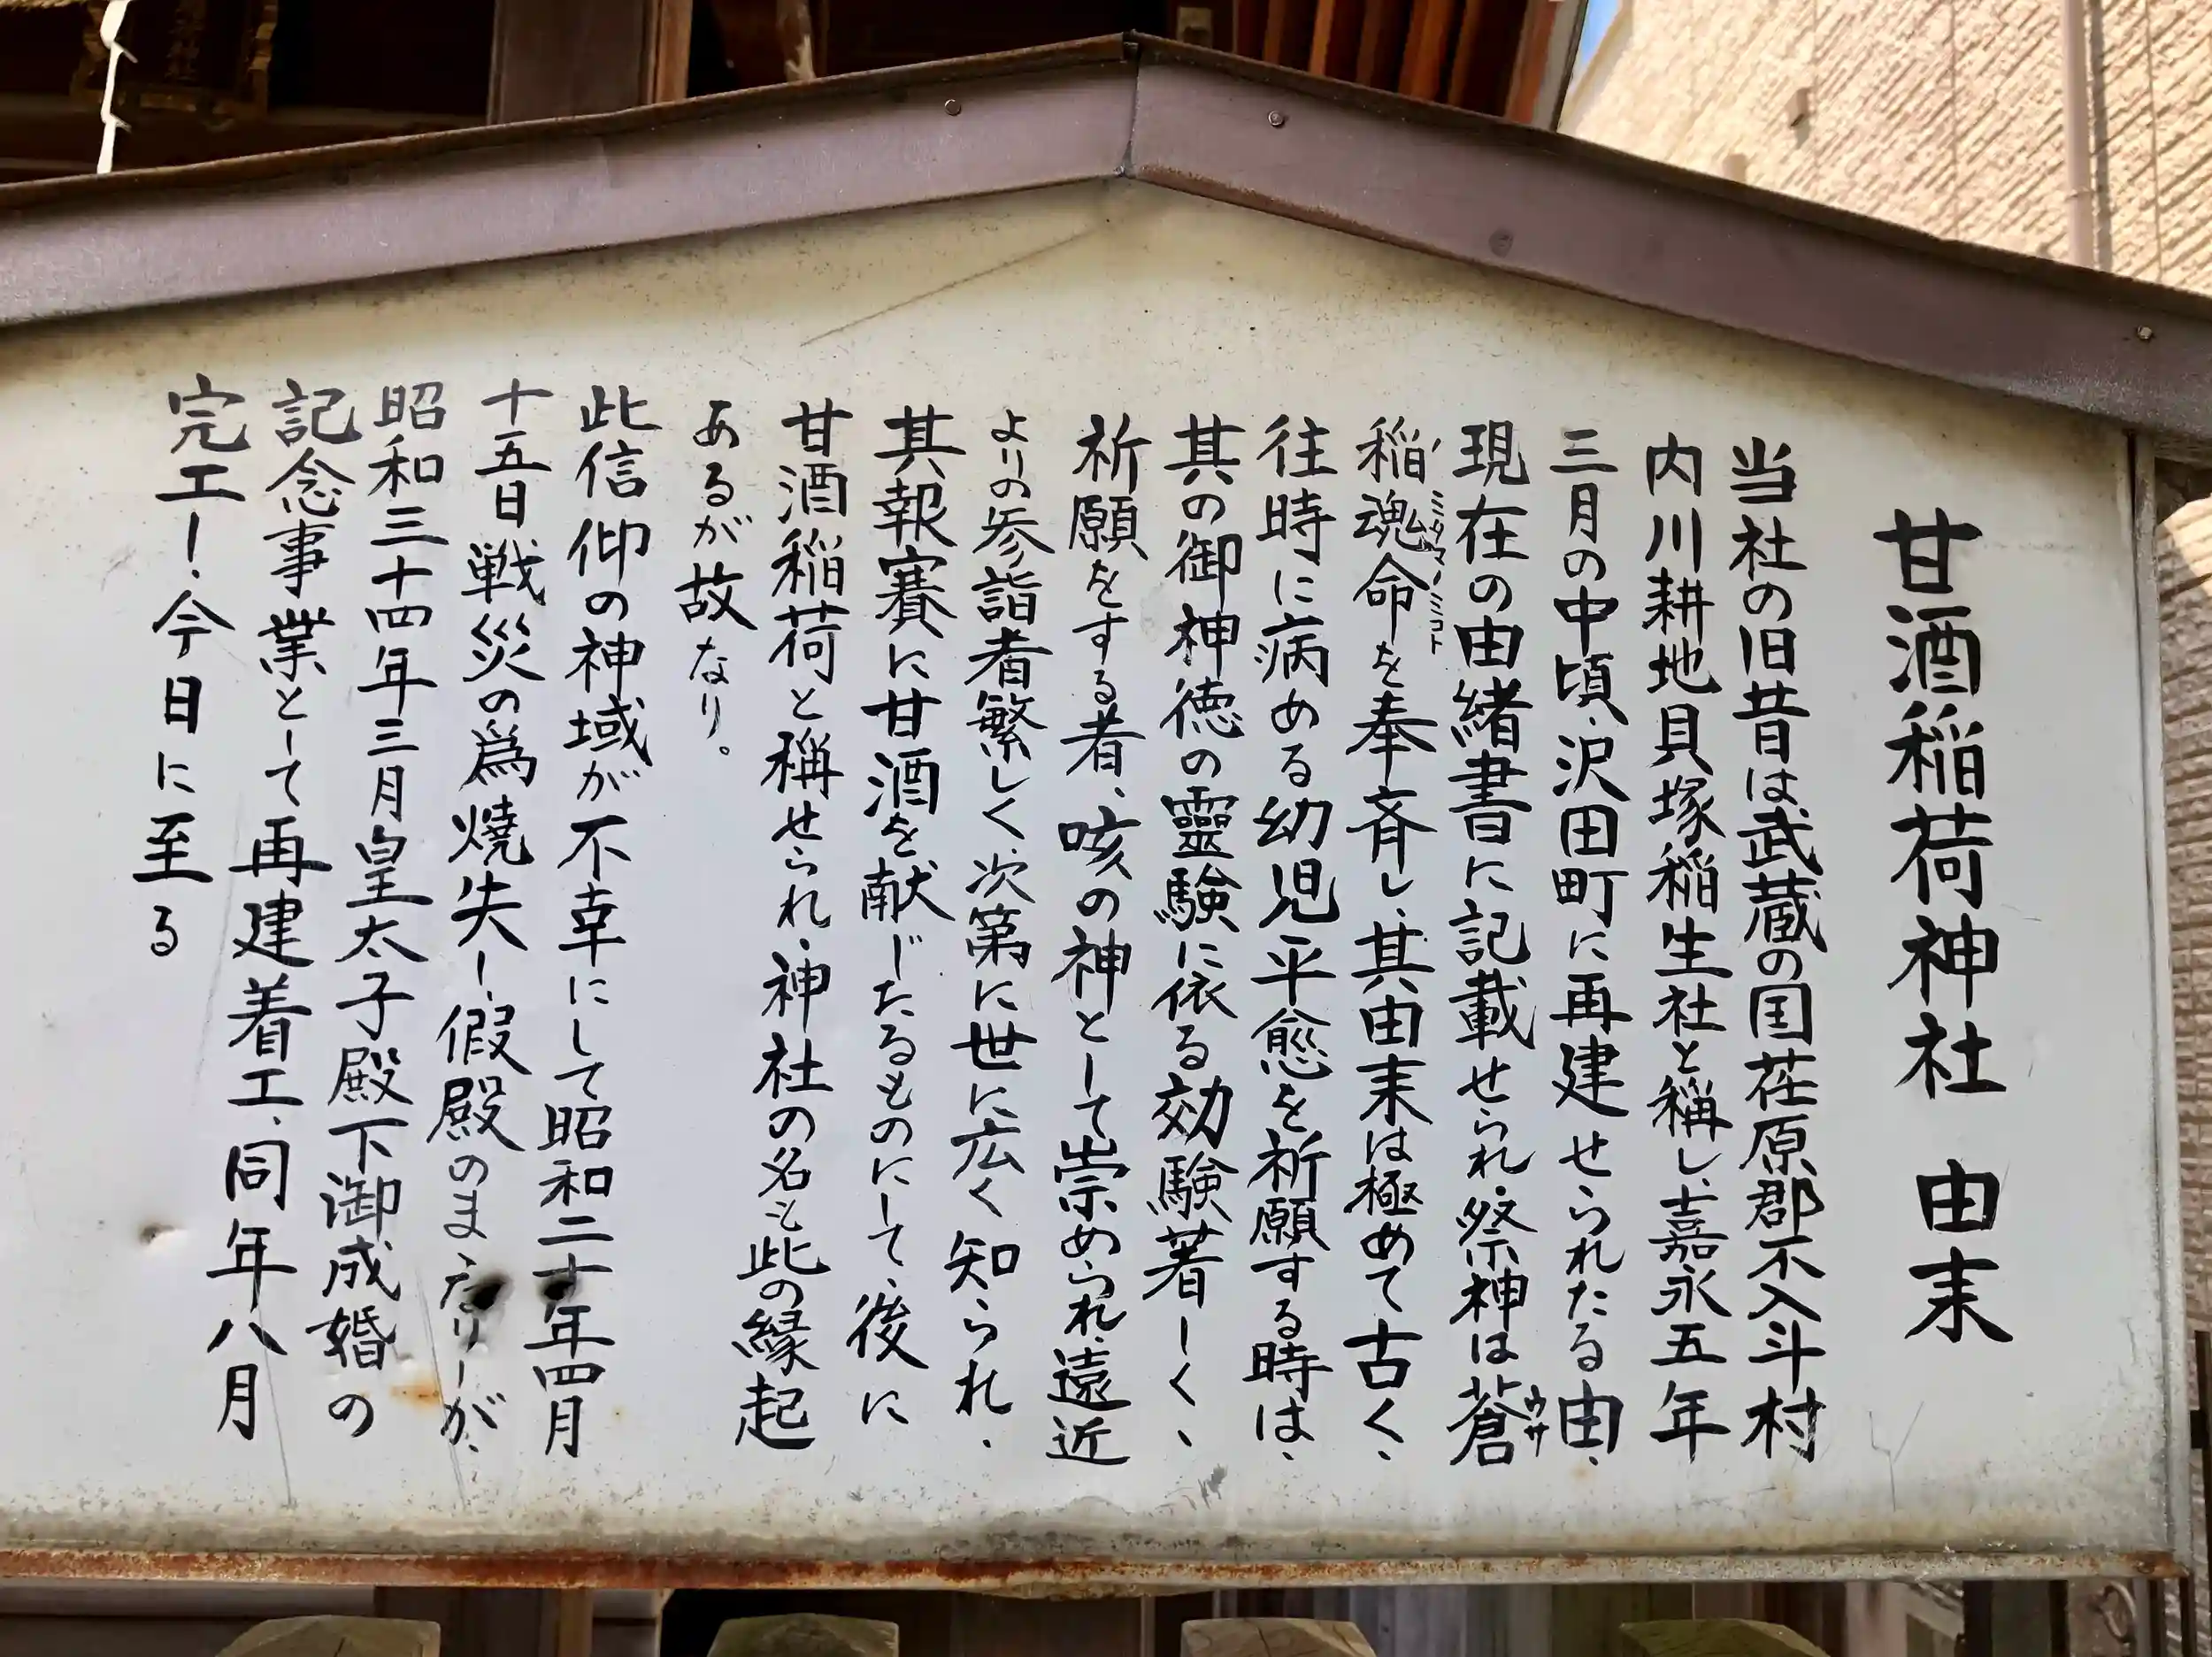 甘酒稲荷神社 由来
当社の旧昔は武蔵の国荏原郡不入斗村
内川耕地貝塚稲生社と稱し、嘉永五年
三月の中頃、沢田町に再建せられたる由、
現在の由緒書に記載せられ、祭神は蒼
稲魂命を奉斉し、其由来は極めて古く、
往時に病める幼児平愈を祈願する時は、
其の御神徳の靈験に依る効験著しく、
祈願をする者、咳の神として崇められ、遠近
よりの参詣者繁しく、次第に世に広く知られ、
其報賽に甘酒を献じたるものにして、後に
甘酒稲荷と稱せられ、神社の名も此の縁起
あるが故なり。
此信仰の神域が不幸にして昭和二十年四月
十五日戦災の爲焼失し、假殿のまゝなりしが、
昭和三十四年三月皇太子殿下御成婚の
記念事業として再建着工、同年八月
完工し、今日に至る